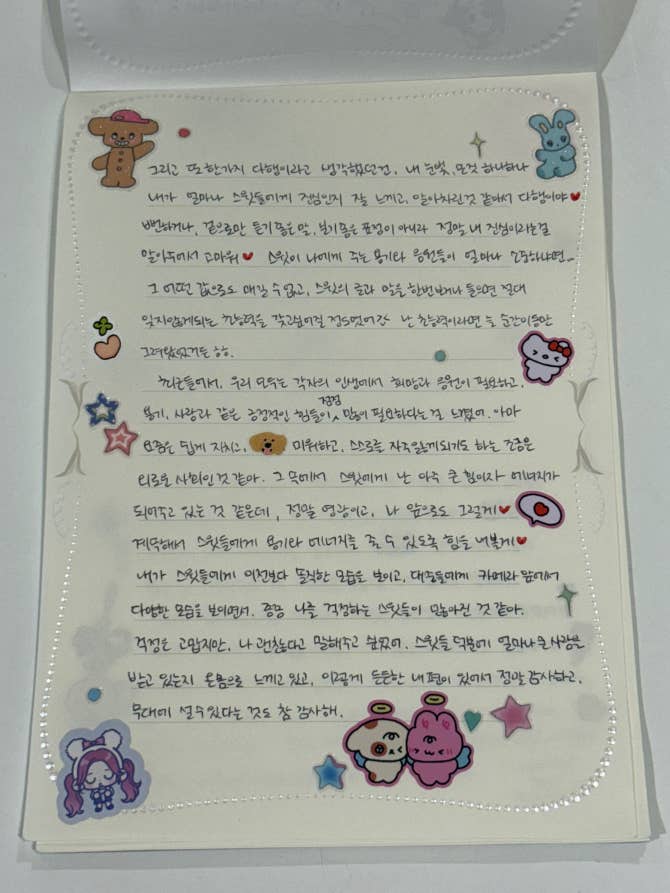 그리고 또한가지 다행이라고 생각했던건, 내 눈빛, 모것 하나하나
내가 얼마나 스윗들에게 진심인지 잘 느끼고, 알아차린것 같아서 다행이야
뻔한거나, 겉으로만 듣기좋은 말, 보기좋은 표정이 아니라 정말 내 진심이라는걸
알아주어서 고마워 스윗이 나에게 주는 용기와 응원들이 얼마나 소중하냐면..
그 어떤 값으로도 매길 수 없고, 스윗의 글과 말을 한번보거나 들으면 절대
잊지않게되는 초능력을 갖고싶어질 정도였어 난 초능력이라면 늘 순간이동만
그려왔었거든 ㅎㅎ.
최근들어서, 우리 모두는 각자의 인생에서 희망과 응원이 필요하고,
용기, 사랑과 같은 긍정적인 힘들이 점점 많이 필요하다는 걸 느꼈어. 아마
요즘은 쉽게 지치고, 미워하고, 스스로를 자주 잃게되기도 하는 조금은
외로운 사회인 것 같아. 그 속에서 스윗에게 난 아주 큰 힘이자 에너지가
되어주고 있는 것 같은데, 정말 영광이고, 나 앞으로도 그럴게
계속해서 스윗들에게 용기와 에너지를 줄 수 있도록 힘을 내볼게
내가 스윗들에게 이전보다 솔직한 모습을 보이고, 대중들에게 카메라 앞에서
다양한 모습을 보이면서, 종종 나를 걱정하는 스윗들이 많아진 것 같아.
걱정은 고맙지만, 나 괜찮다고 말해주고 싶었어. 스윗들 덕분에 얼마나 큰 사랑을
받고 있는지 온몸으로 느끼고 있고, 이렇게 든든한 내 편이 있어서 정말 감사하고,
무대에 설 수 있다는 것도 참 감사해.